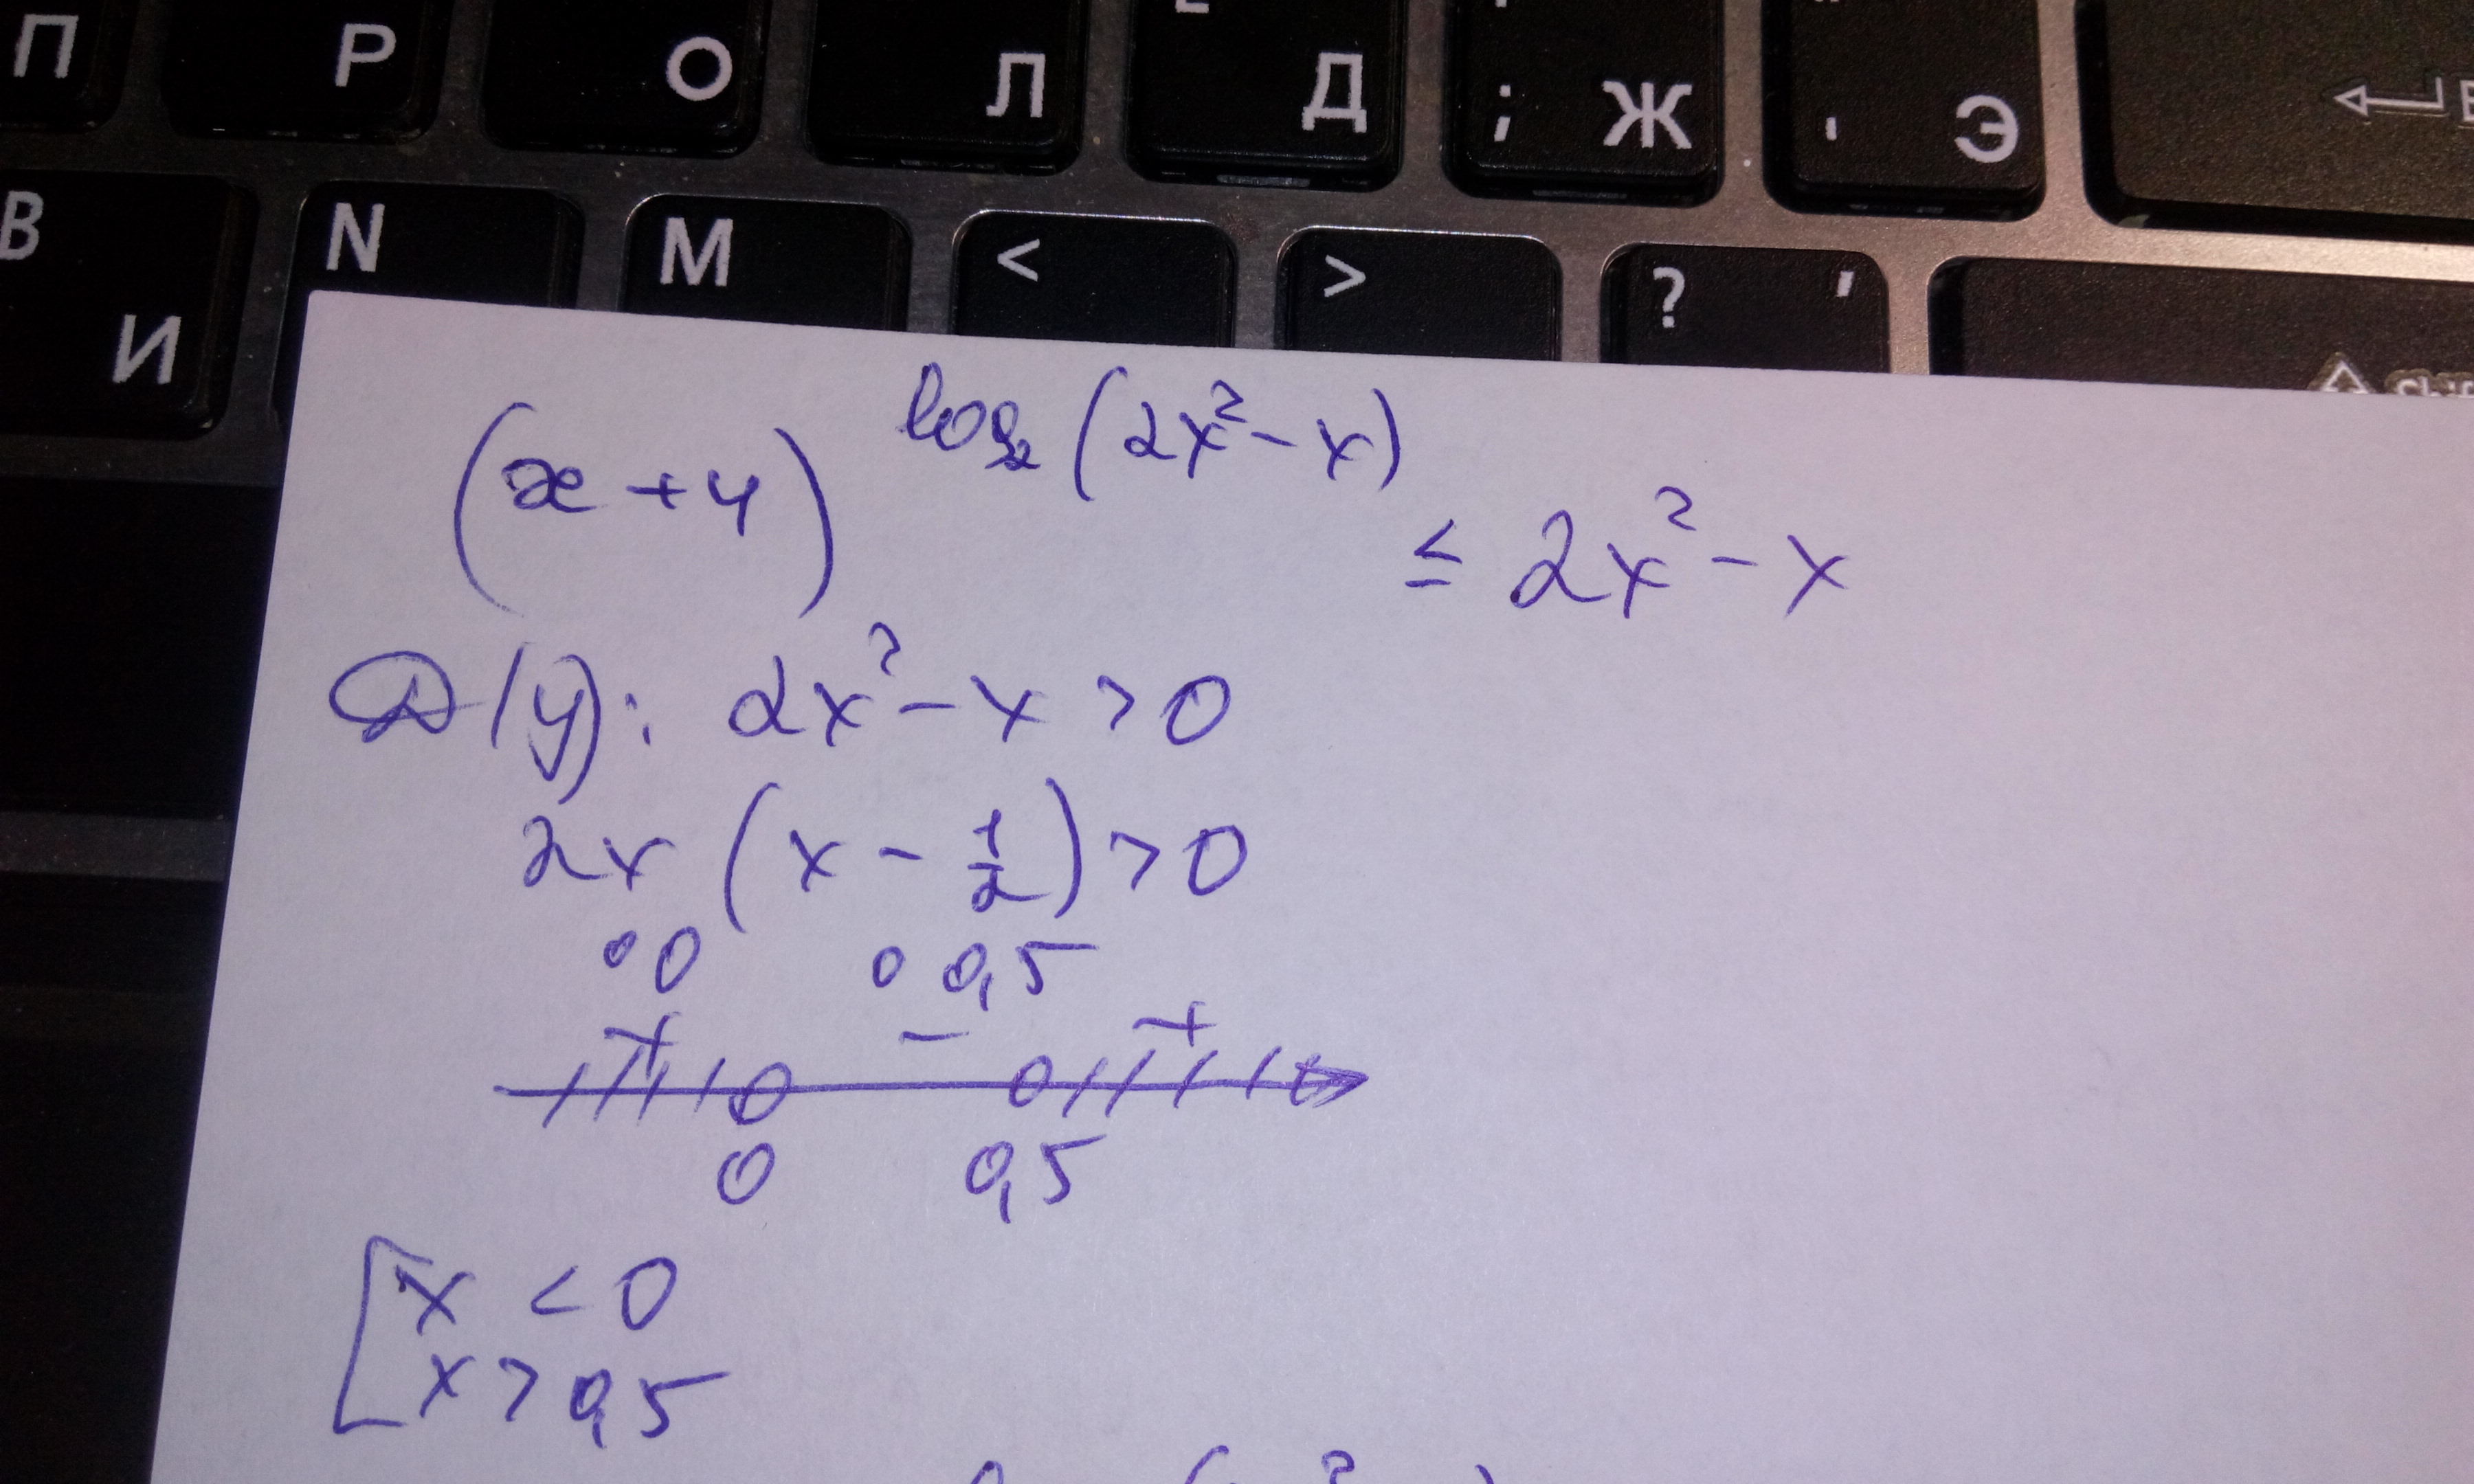 П Р О Л Д ; Ж ' Э
B И N M < > ? ,
(x + 4)^log₂(2x² - x) ≤ 2x² - x
D(y): 2x² - x > 0
2x (x - 1/2) > 0
° 0 ° 0,5
+ - +
0 0,5
[ x < 0
x > 0,5